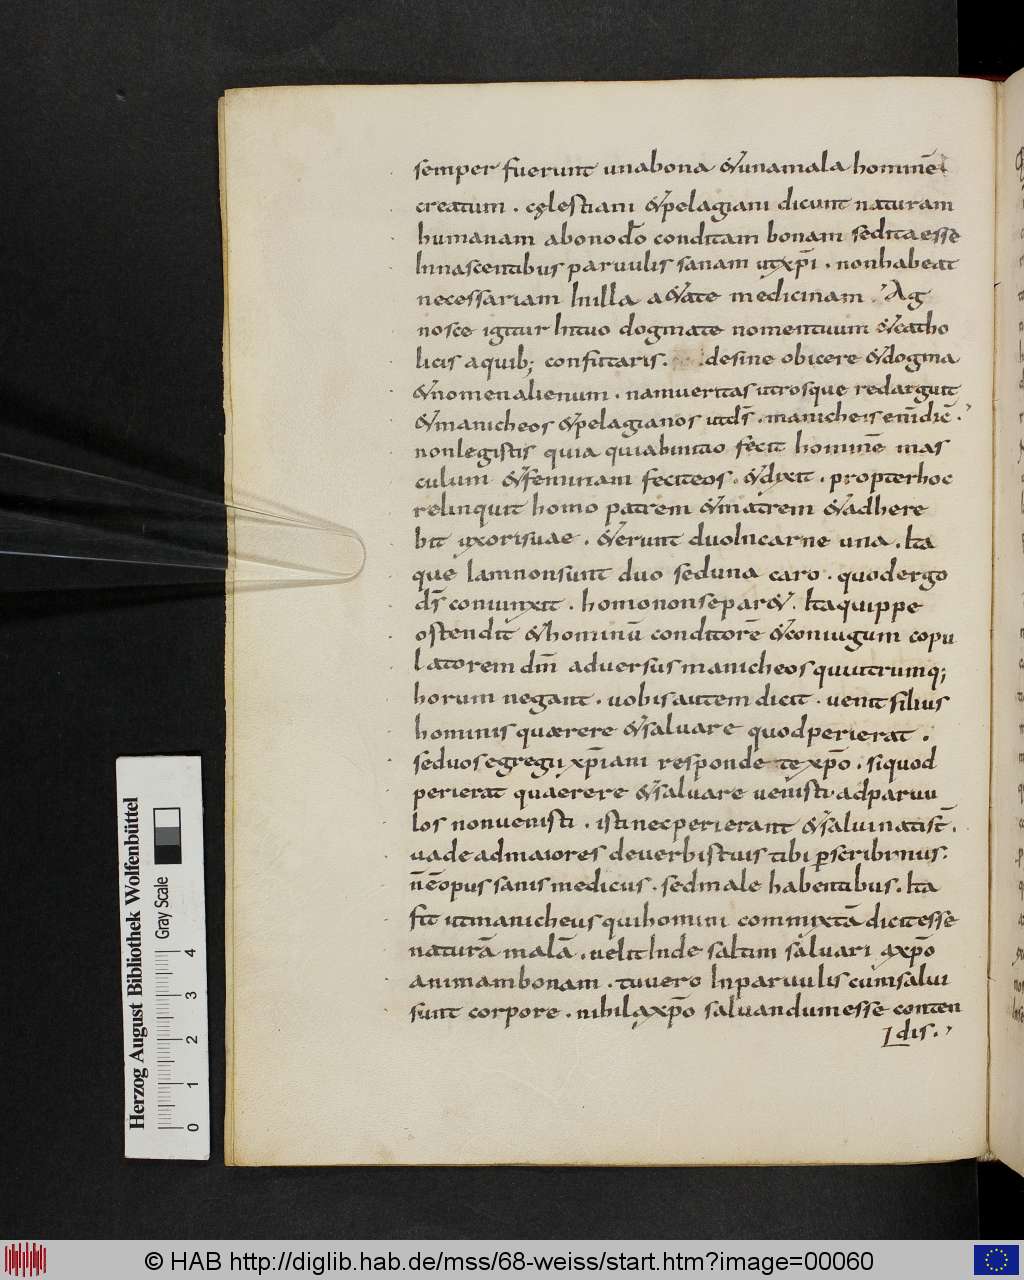 semper fuerunt una bona & una mala hominē
creatum . cęlestiani & pelagiani dicunt naturam
humanam abono dō conditam bonam sed ita esse
In nascentibus paruulis sanam ut xp̄i . non habeat
necessariam In illa aetate medicinam . Ag
nosce igitur In tuo dogmate nomen tuum & catho
licis a quib; confutaris . desine obicere & dogma
& nomen alienum . nam ueritas utrosque redarguit
& manicheos & pelagianos ut dn̄s . manicheis enim dic̄ .
non legistis quia qui ab initio fecit hominē mas
culum & feminam fecit eos . & dixit . propter hoc
relinquit homo patrem & matrem & adhere
bit uxori suae . & erunt duo In carne una . Ita
que Iam non sunt duo sed una caro . quod ergo
ds̄ coniunxit . homo non separ& . Ita quippe
ostendit & hominū conditorē & coniugum copu
latorem dm̄ aduersus manicheos qui utrumq;
horum negant . uobis autem dicit . uenit filius
hominis quærere & saluare quod perierat .
sed uos egregii xp̄iani responde te xp̄o . si quod
perierat quaerere & saluare uenisti ad paruu
los non uenisti . isti nec perierant & salui nati st̄ .
uade ad maiores de uerbis tuis tibi p̄scribimus .
n̄ ē opus sanis medicus . sed male habentibus . Ita
fit ut manicheus qui homini commixtā dicit esse
naturā malā . uelit Inde saltim saluari a xp̄o
animam bonam . tu uero In paruulis cum salui
sunt corpore . nihil a xp̄o saluandum esse conten
dis .
Herzog August Bibliothek Wolfenbüttel
Gray Scale
0 1 2 3 4
© HAB http://diglib.hab.de/mss/68-weiss/start.htm?image=00060